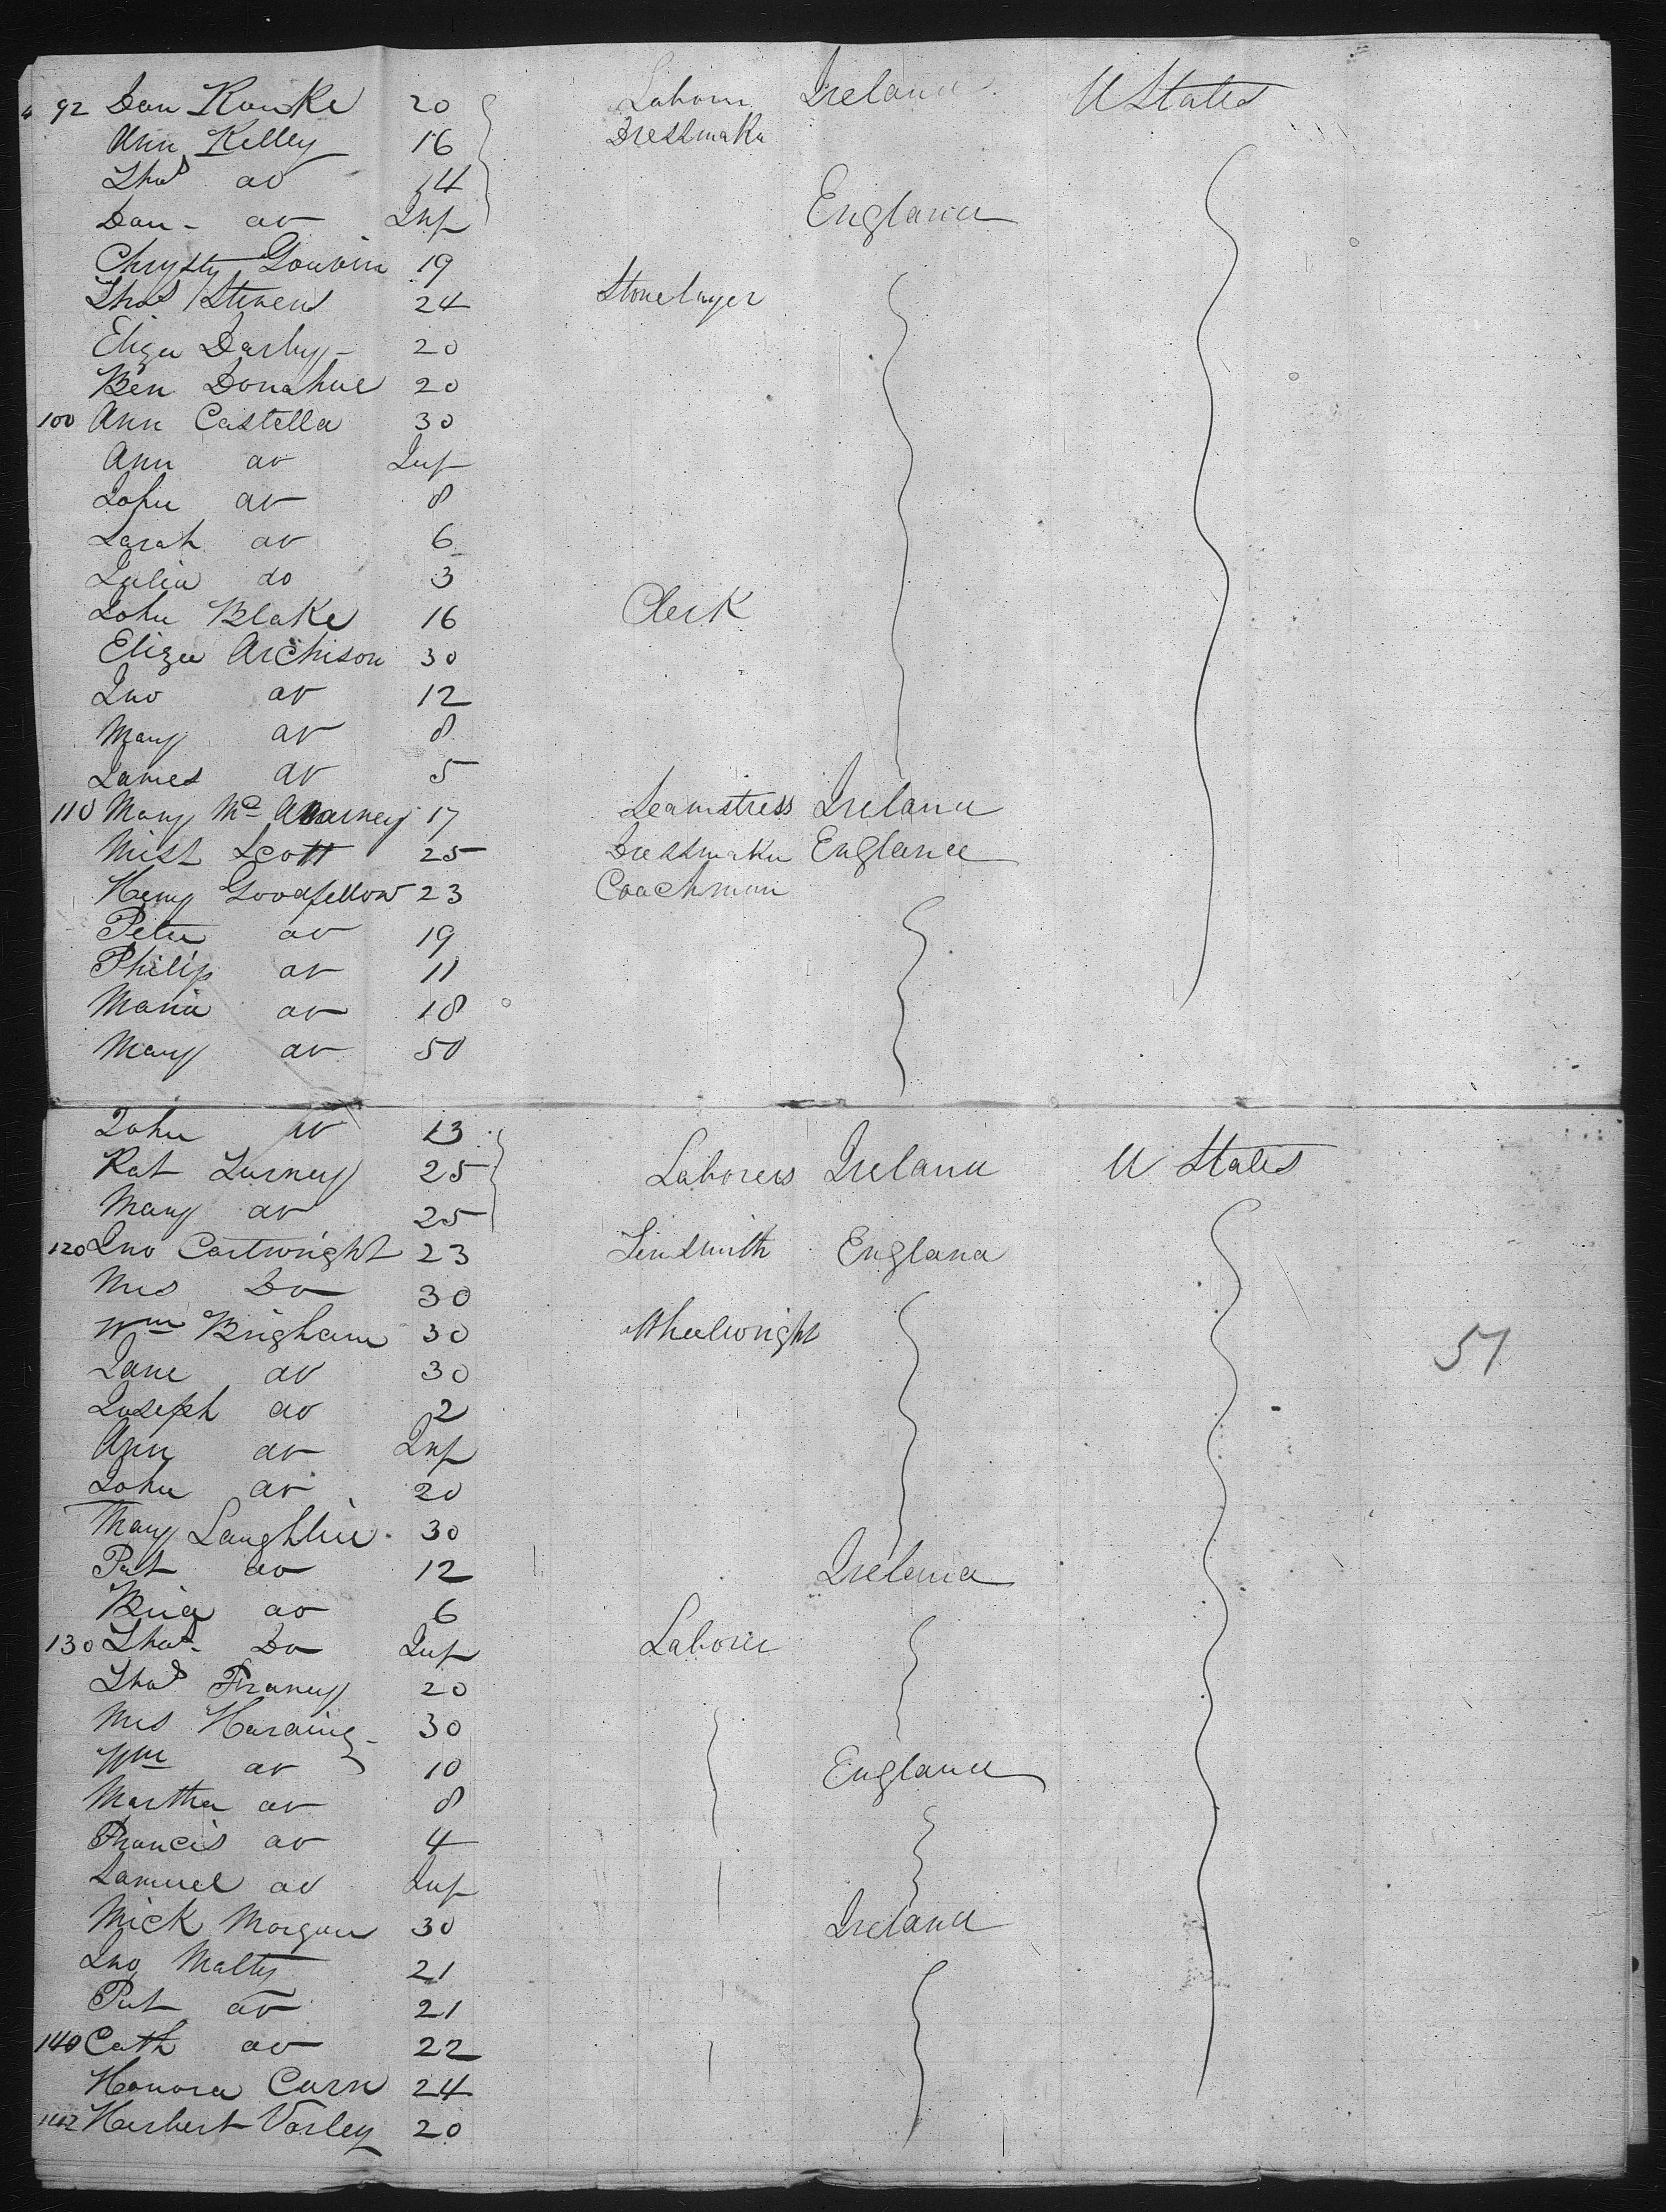 92 Dan Rourke 20 Laborer Ireland U States
Ann Kelley 16 Dressmaker
Thos do 14
Dan - do Inf England
Chrysty 19
Thos Stevens 24 Stonelayer
Eliza Darby - 20
Ben Donahue 20
100 Ann Castella 30
Ann do Inf
John do 8
Sarah do 6
Julia do 3
John Blake 16 Clerk
Eliza Atchison 30
Jno do 12
Mary do 8
James do 5
110 Mary Mc 17 Seamstress Ireland
Miss Scott 25 Dressmaker England
Henry Goodfellow 23 Coachman
Peter do 19
Philip do 11
Maria do 18
Mary do 50
John do 13
Pat Turney 25 Laborers Ireland U States
Mary do 25
120 Jno Cartwright 23 Tinsmith England
Mrs Do 30
Wm Brigham 30 Wheelwright
Jane do 30
Joseph do 2
Ann do Inf
John do 20
Mary Laughlin 30
Pat do 12 Ireland
do 6
130 Thos - Do Inf Laborer
Thos Franey 20
Mrs Harding - 30
Wm do 10 England
Martha do 8
Francis do 4
Samuel do Inf
Mick Morgan 30 Ireland
Jno Malty 21
Pat do 21
140 Cath do 22
Honora Curn 24
142 Herbert Varley 20
51